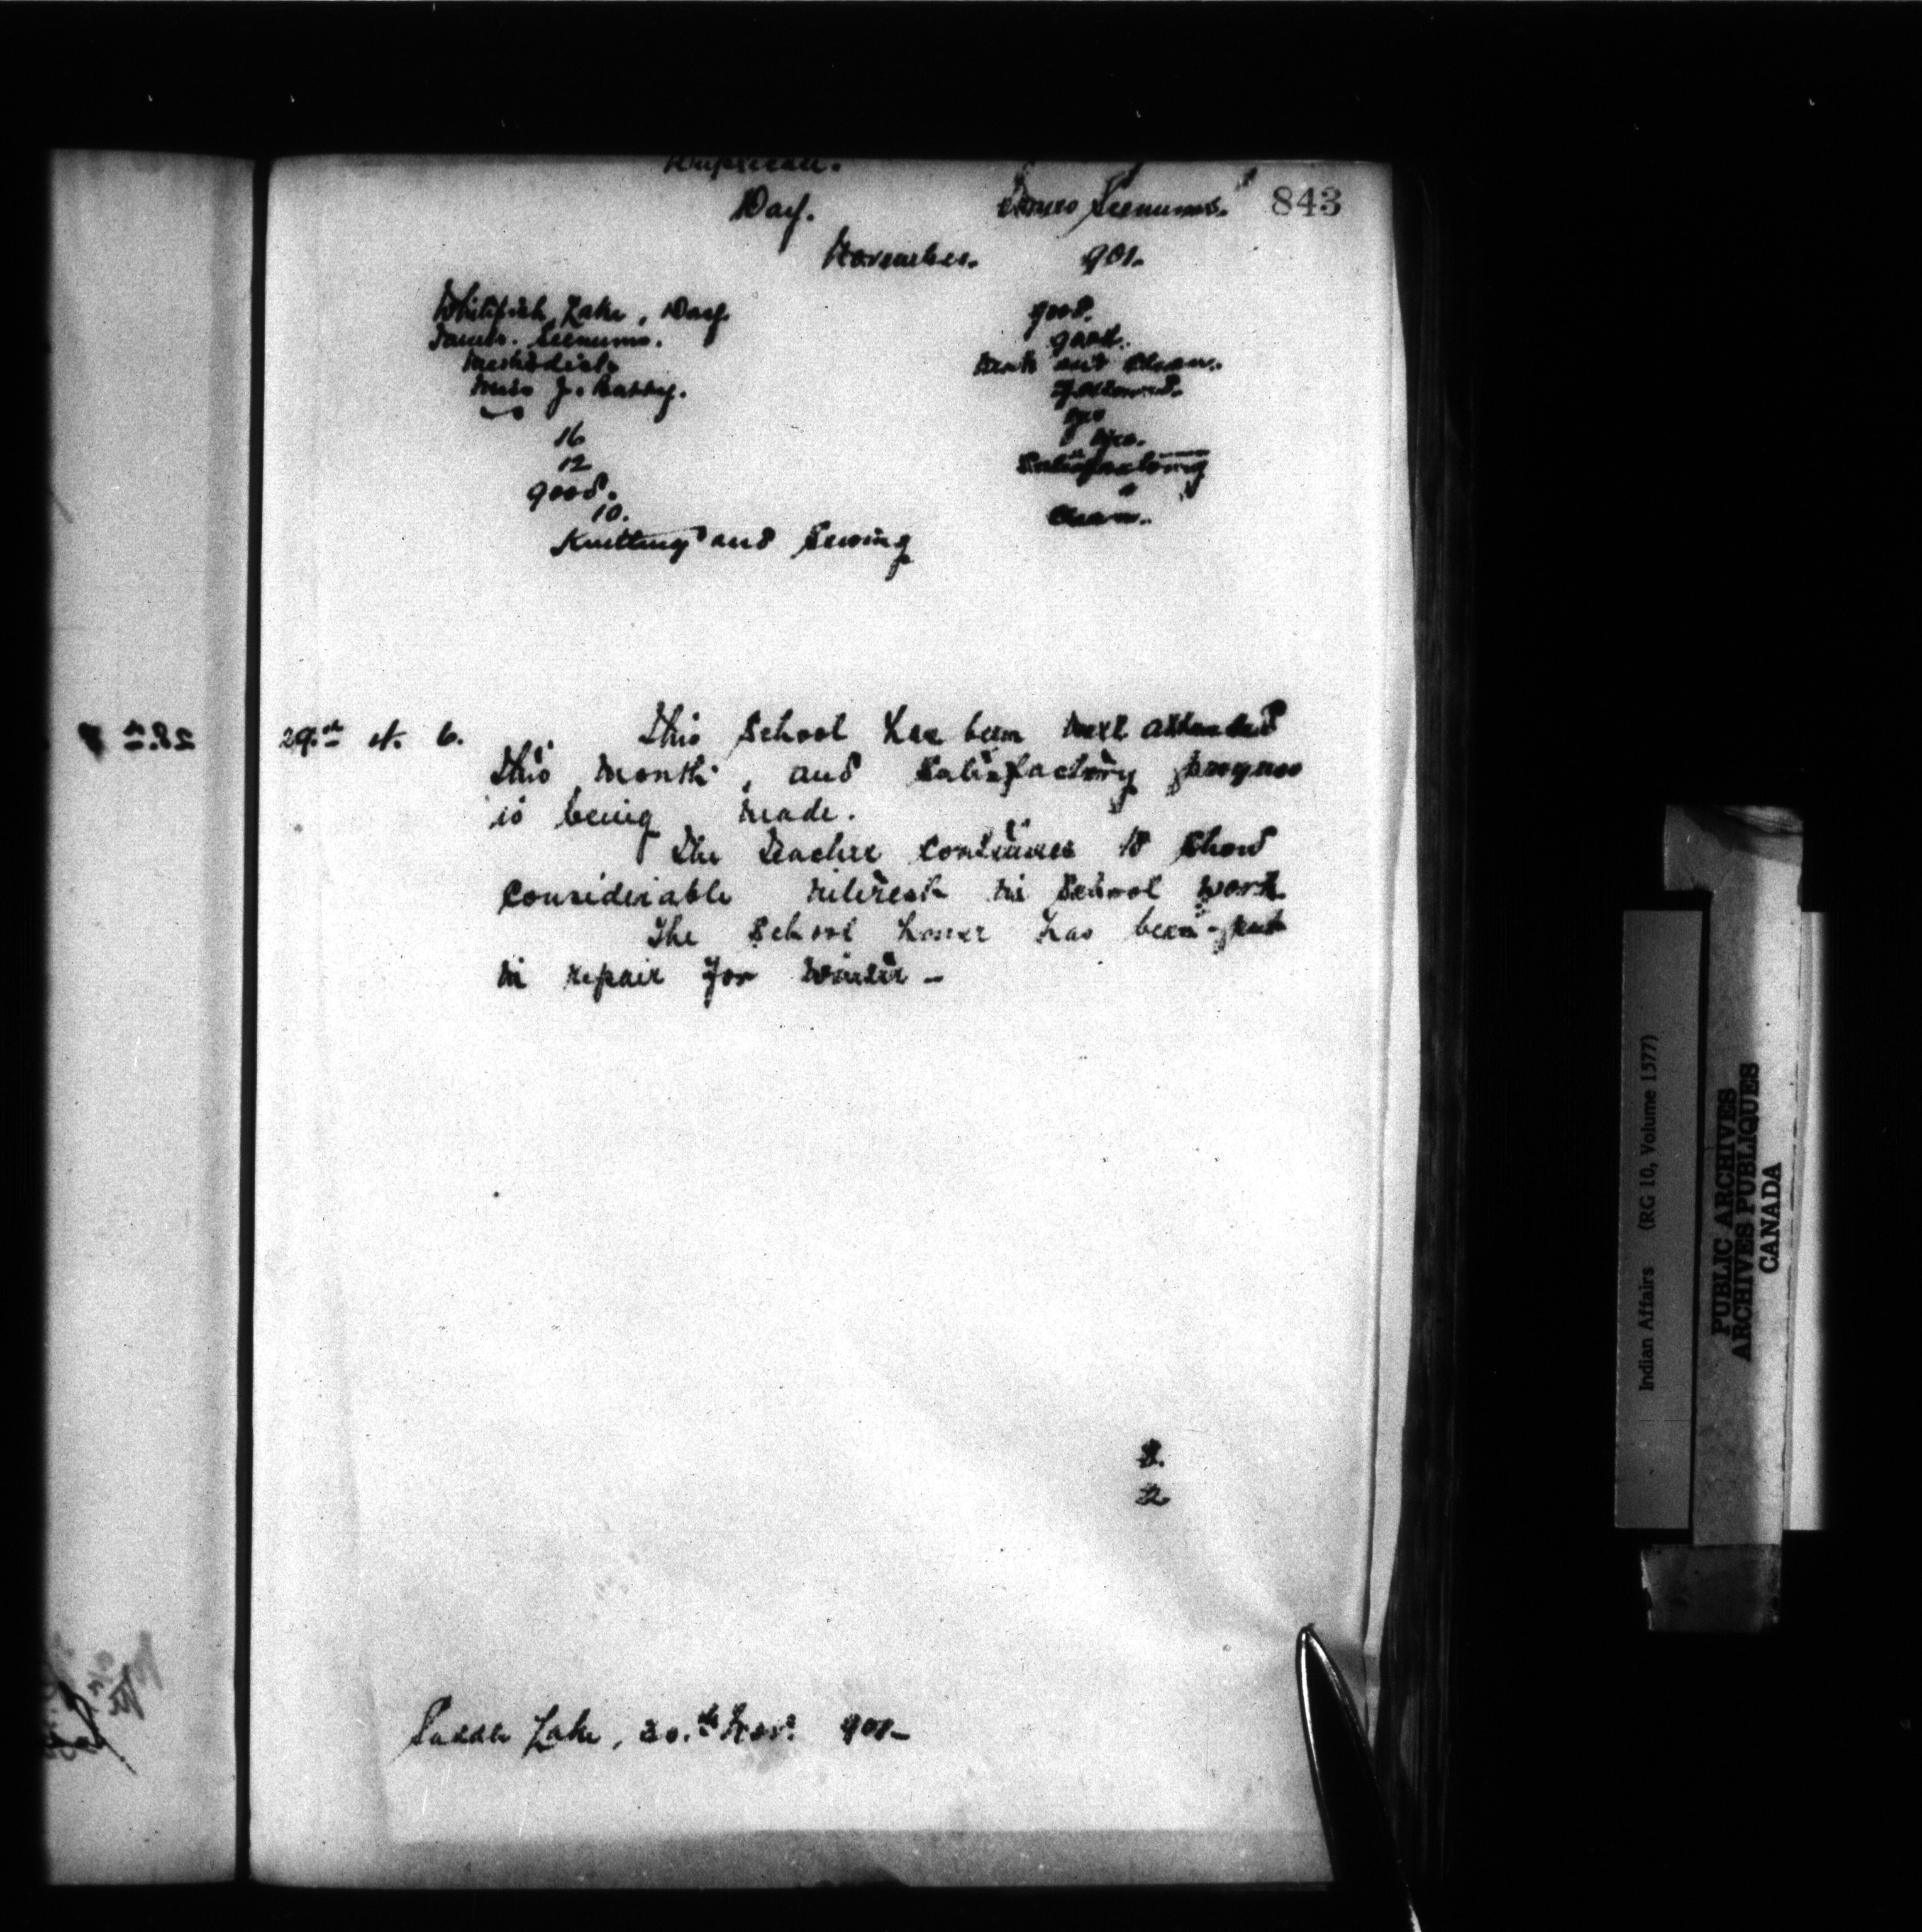 843
Day. James Seenums.
November. 901.
Whitefish Lake, Day.
James Seenums.
Methodist
Miss J. Batty.
16
12
good.
10.
Knitting and Sewing
good.
good.
Neat and Clean.
Followed.
Yes
Yes.
Satisfactory
"
Clean.
29.th N. 6. This School has been well attended
this month, and Satisfactory progress
is being made.
The Teacher continues to show
considerable interest in School work
The School house has been put
in repair for Winter -
2.
2
Saddle Lake, 30.th Nov. 901-
28.th
Indian Affairs (RG 10, Volume 1577)
PUBLIC ARCHIVES
ARCHIVES PUBLIQUES
CANADA